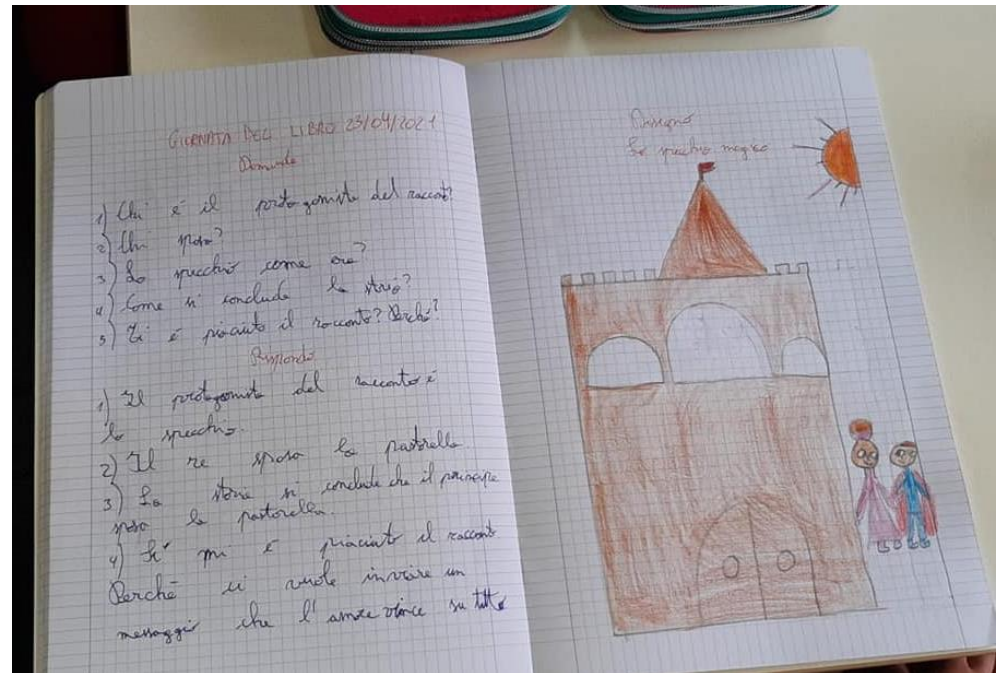 GIORNATA DEL LIBRO 23/04/2021
Domande
1) Chi è il protagonista del racconto?
2) Chi sposa?
3) Lo specchio come era?
4) Come si conclude la storia?
5) Ti è piaciuto il racconto? Perché?
Rispondo
1) Il protagonista del racconto è
lo specchio.
2) Il re sposa la pastorella.
3) La storia si conclude che il principe
sposa la pastorella.
4) Si mi è piaciuto il racconto
Perché ci vuole inviare un
messaggio che l'amore vince su tutto
Disegno
Lo specchio magico